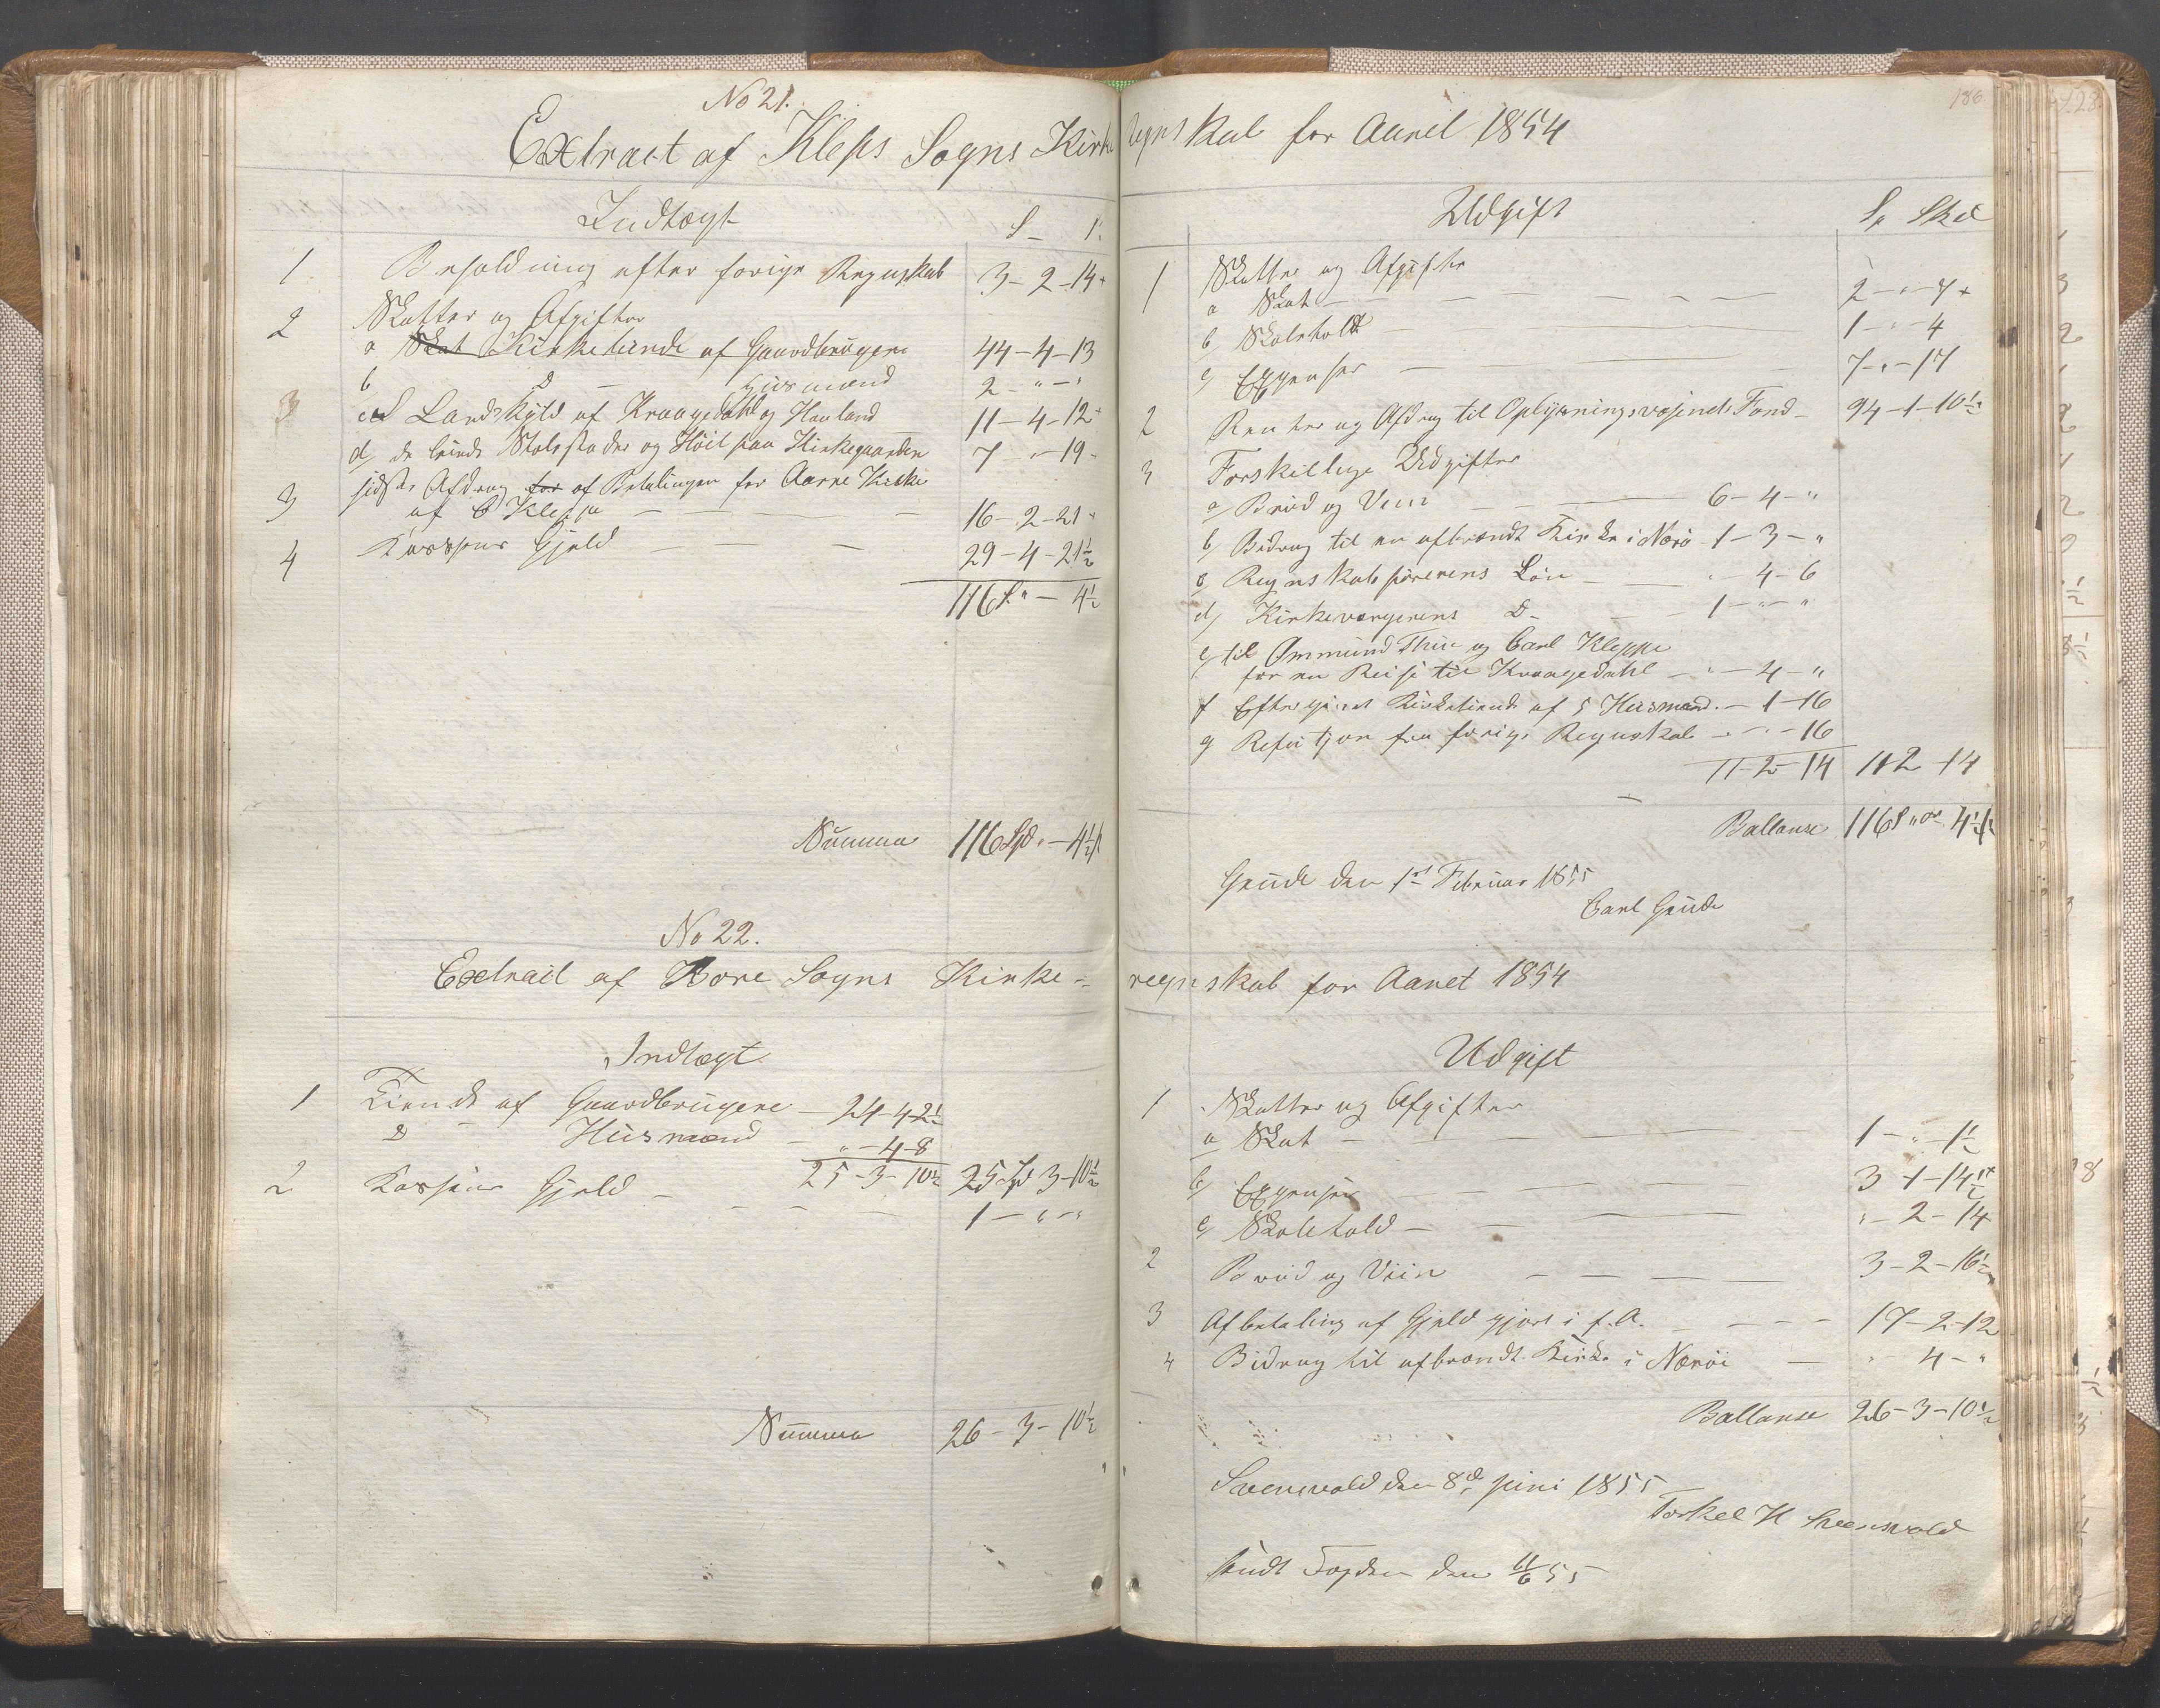 No 21.
Extract af Kleps Sogns Kirke
Indtægt
S - s.
1 Beholdning efter forige Regnskab 3 - 2 - 14
2 Skatter og Afgifter
a Skat Kirketiende af Gaardbrugere 44 - 4 - 13
b D - Husmænd 2 - " - "
3 c Landskyld af Kraagedahl og Hauland 11 - 4 - 12
d, de leiede Stolestader og Höit paa Kirkegaarden 7 " - 19 -
3 sidste Afdrag for af Betalingen for Aarre Kirke
af C Kleppe 16 - 2 - 21
4 Kassens Gjeld 29 - 4 - 21½
116 S " - 4½
Summa 116 Spd " - 4½ s
No 22.
Extrait af Bore Sogns Kirke-
Indtægt
1 Tiende af Gaardbrugere - 24 - 4 - 2½
D - Huusmænd - " - 4 - 8
25 - 3 - 10½ 25 Sp 3 - 10½
2 Kassens Gjeld - 1 - " - "
Summa 26 - 3 - 10½
186
regnskab for Aaret 1854
Udgift
Sp Skil
1 Skatter og Afgifter
a Skat 2 - " - 7
b, Skolehold 1 - " - 4
c, Expenser 7 - " - 17
2 Renter og Afdrag til Oplysningsvæsenets Fond - 94 - 1 - 10½
3 Forskjellige Udgifter
a, Bröd og Viin 6 - 4 - "
b, Bidrag til en afbrændt Kirke i Nærö 1 - 3 - "
c, Regnskabsförerens Lön " - 4 - 6
d, Kirkeværgerens D - 1 - " - "
e, til Ommund Thu og Carl Kleppe
for en Reise til Kraagedahl - " - 4 - "
f Eftergivet Kirketiende af 5 Husmænd. - 1 - 16
g Refusjon fra forige Regnskab - " - " - 16
11 - 2 - 14 11 2 - 14
Ballanse 116 S " - 4½ s
Grude den 1st Februar 1855
Carl Grude
regnskab for Aaret 1854
Udgift
1 Skatter og Afgifter
a Skat - 1 - " - 1½
b, Expenser 3 - 1 - 14½
c, Skolehold - " - 2 - 14
2 Bröd og Viin 3 - 2 - 16½
3 Afbetaling af Gjeld gjort i f. A. 17 - 2 - 12
4 Bidrag til afbrændt Kirke i Næröi " 4 - "
Ballanse 26 - 3 - 10½
Svensvold den 8de juni 1855
Torkel H Svensvold
sendt Fogden den 11/6 55